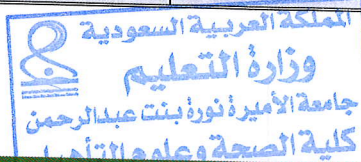 المملكة العربية السعودية
وزارة التعليم
جامعة الأميرة نورة بنت عبدالرحمن
كلية الصحة وعلوم التأهيل